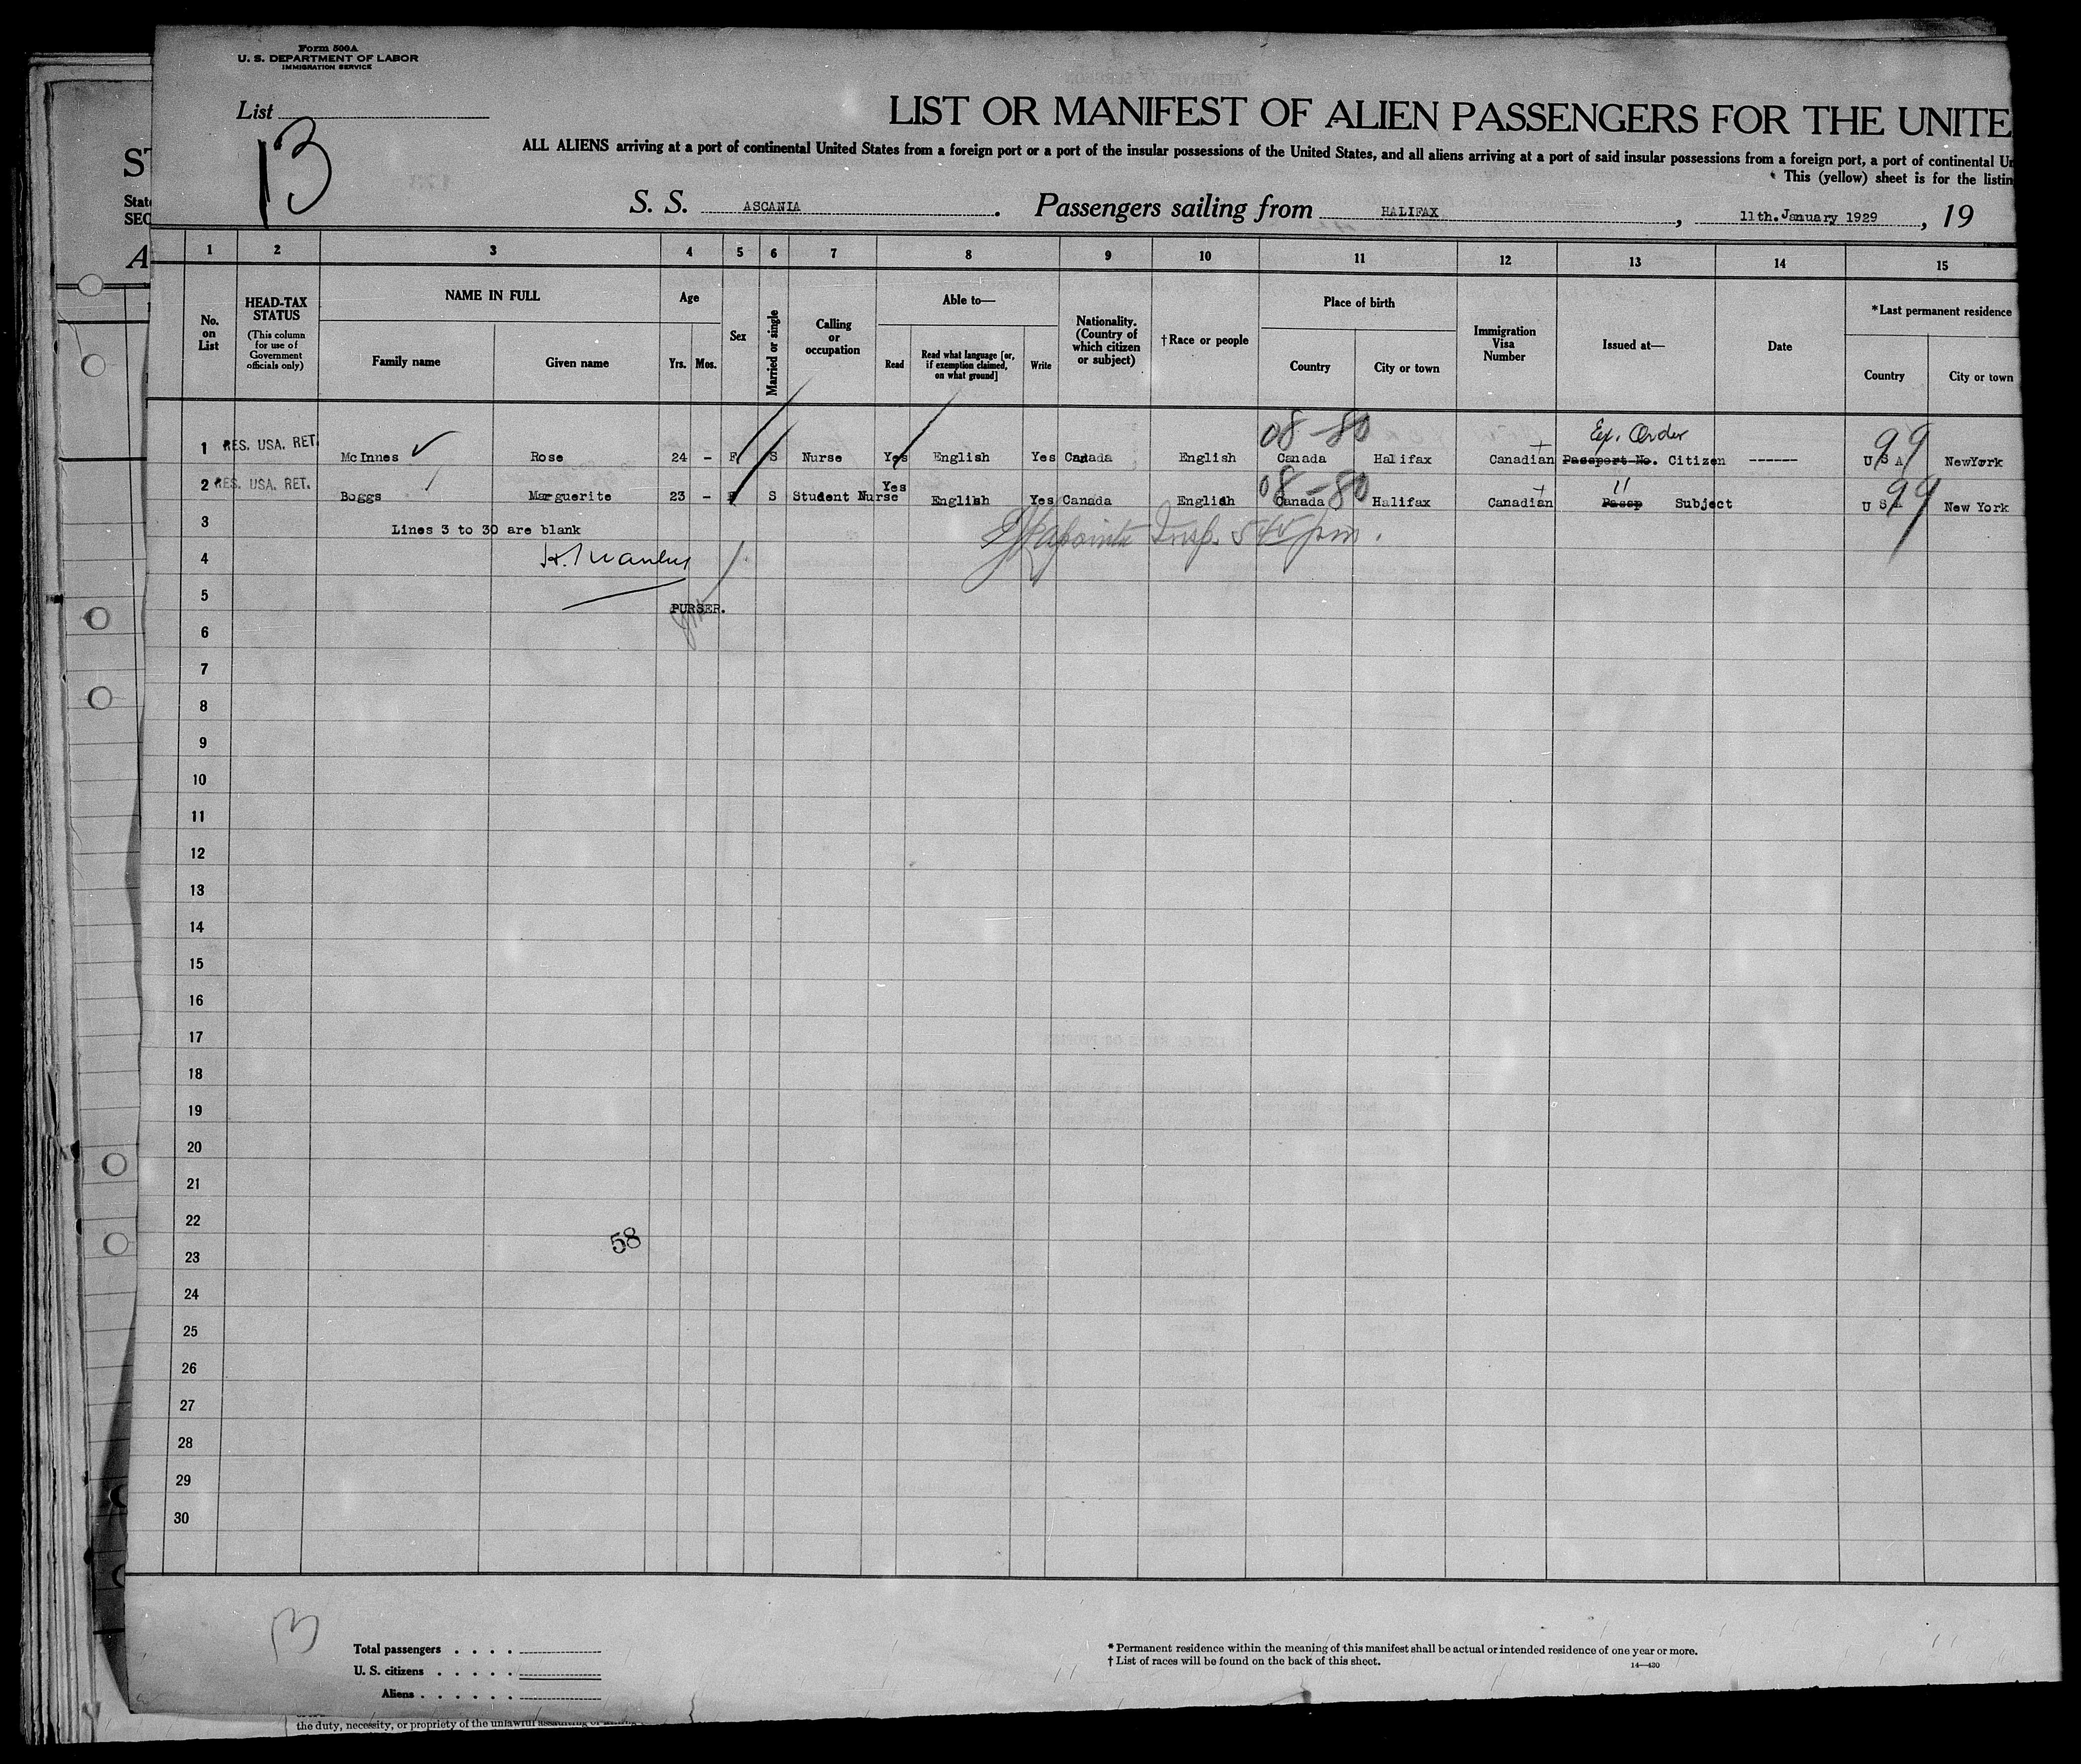 Form 500A
U. S. DEPARTMENT OF LABOR
IMMIGRATION SERVICE
List
13
LIST OR MANIFEST OF ALIEN PASSENGERS FOR THE UNITE
ALL ALIENS arriving at a port of continental United States from a foreign port or a port of the insular possessions of the United States, and all aliens arriving at a port of said insular possessions from a foreign port, a port of continental Un
This (yellow) sheet is for the listin
S. S. ASCANIA. Passengers sailing from HALIFAX, 11th. January 1929, 19
1 2 3 4 5 6 7 8 9 10 11 12 13 14 15
No. on List
HEAD-TAX STATUS
(This column for use of Government officials only)
NAME IN FULL
Family name Given name
Age
Yrs. Mos.
Sex
Married or single
Calling or occupation
Able to—
Read
Read what language [or, if exemption claimed, on what ground]
Write
Nationality. (Country of which citizen or subject)
† Race or people
Place of birth
Country City or town
Immigration Visa Number
Issued at—
Date
*Last permanent residence
Country City or town
08-80 Ex. Order 99
1 RES. USA. RET. McInnes Rose 24 - F S Nurse Yes English Yes Canada English Canada Halifax Canadian Passport No. Citizen ------ U S A NewYork
08-80 " 99
2 RES. USA. RET. Boggs Marguerite 23 - F S Student Nurse Yes English Yes Canada English Canada Halifax Canadian Passp Subject U S A New York
3 Lines 3 to 30 are blank
Insp. 5 45 pm.
4
5 PURSER.
6
7
8
9
10
11
12
13
14
15
16
17
18
19
20
21
22
58
23
24
25
26
27
28
29
30
13
Total passengers . . . .
U. S. citizens . . . . .
Aliens . . . . . .
* Permanent residence within the meaning of this manifest shall be actual or intended residence of one year or more.
† List of races will be found on the back of this sheet.
14—430
ST
State
SEC
A
the duty, necessity, or propriety of the unlawful